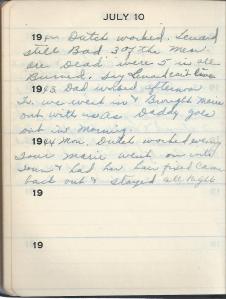 JULY 10
1942 Dutch worked. Lenard
still Bad 3 of the men
are Dead were 5 in all
Burned. Say Lenard can't live
1943 Dad worked afternoon
we went in & Brought Marie
out with us as Daddy goes
out in morning.
1944 Mon. Dutch worked evening
Marie went on into
Town & had her hair fixed came
back out & stayed all night
19
19